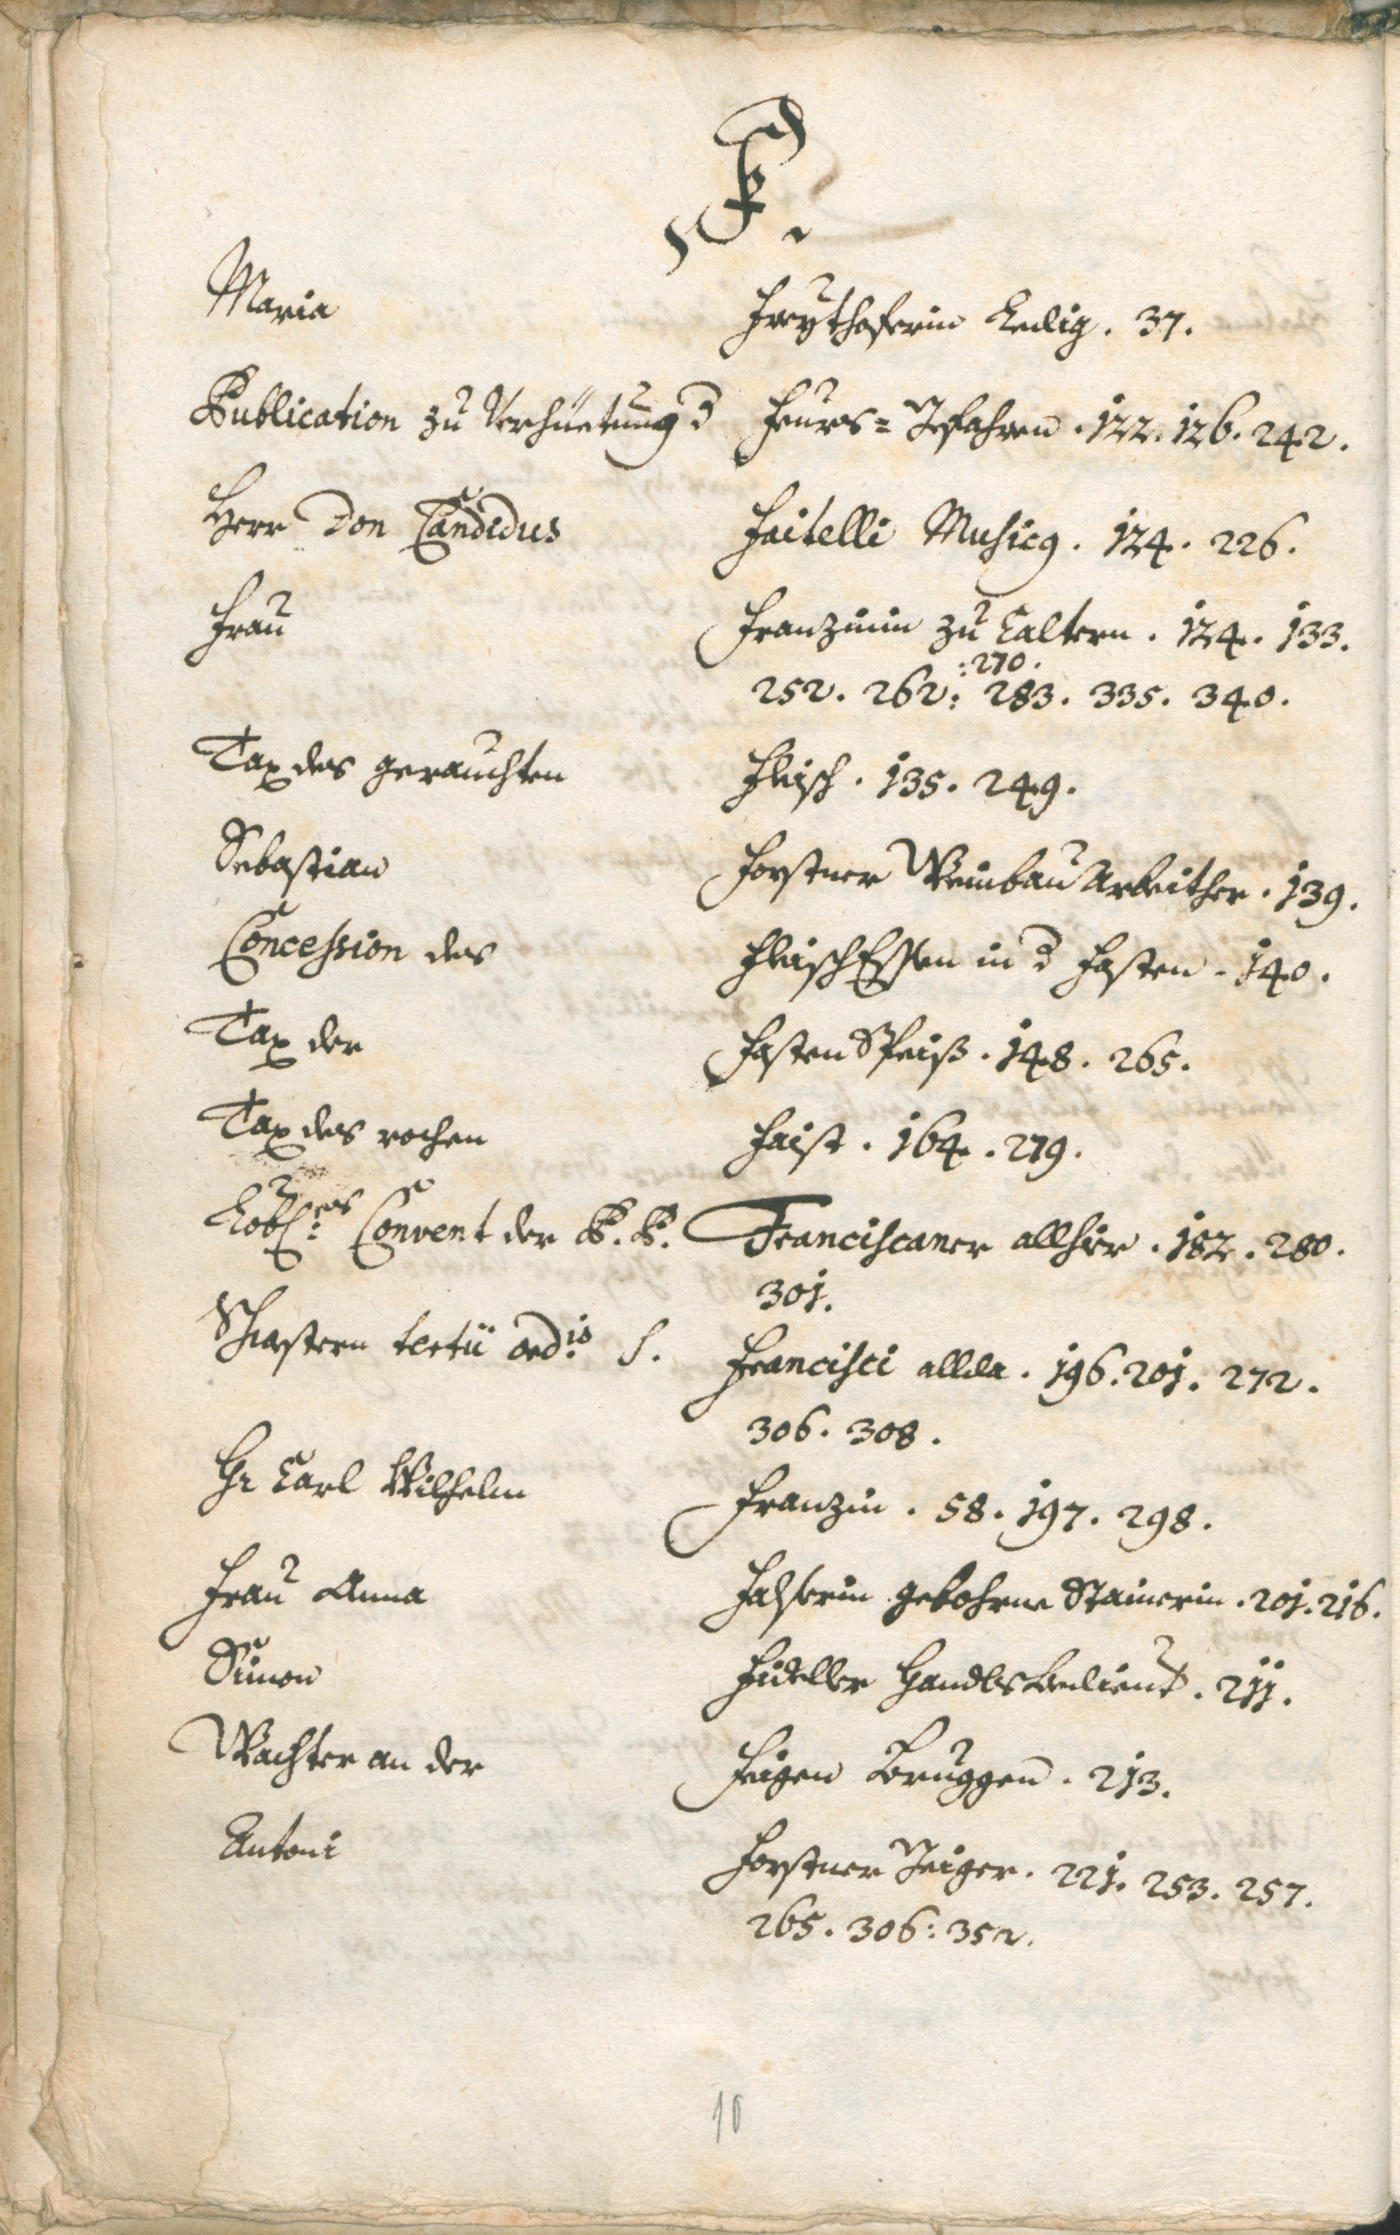 F.
Maria Freythoferin Ledig. 37.
Publication zu Verhüetung d Feurs= Gefahren. 122. 126. 242.
Herr Don Candidus Faitelli Musicg. 124. 226.
Frau Franzinin zu Caltern. 124. 133.
:270.
252. 262: 283. 335. 340.
Tax des gerauchten Fleisch. 135. 249.
Sebastian Forstner Weinbau Arbeither. 139.
Concession des FleischEssen in d Fasten. 140.
Tax der Fasten Speiß. 148. 265.
Tax des rochen Faist. 164. 279.
Löbl:es Convent der P. P. Franciscaner allhier. 182. 280.
301.
Schwestern tertii ord:is S. Francisci allda. 196. 201. 272.
306. 308.
Hr Carl Wilhelm Franzin. 58. 197. 298.
Frau Anna gebohrne Stainerin. 201. 216.
Simon Handlsbedient. 211.
Wachter an der Feigen Bruggen. 213.
Antoni Forstner Geiger. 221. 253. 257.
265. 306: 352.
10